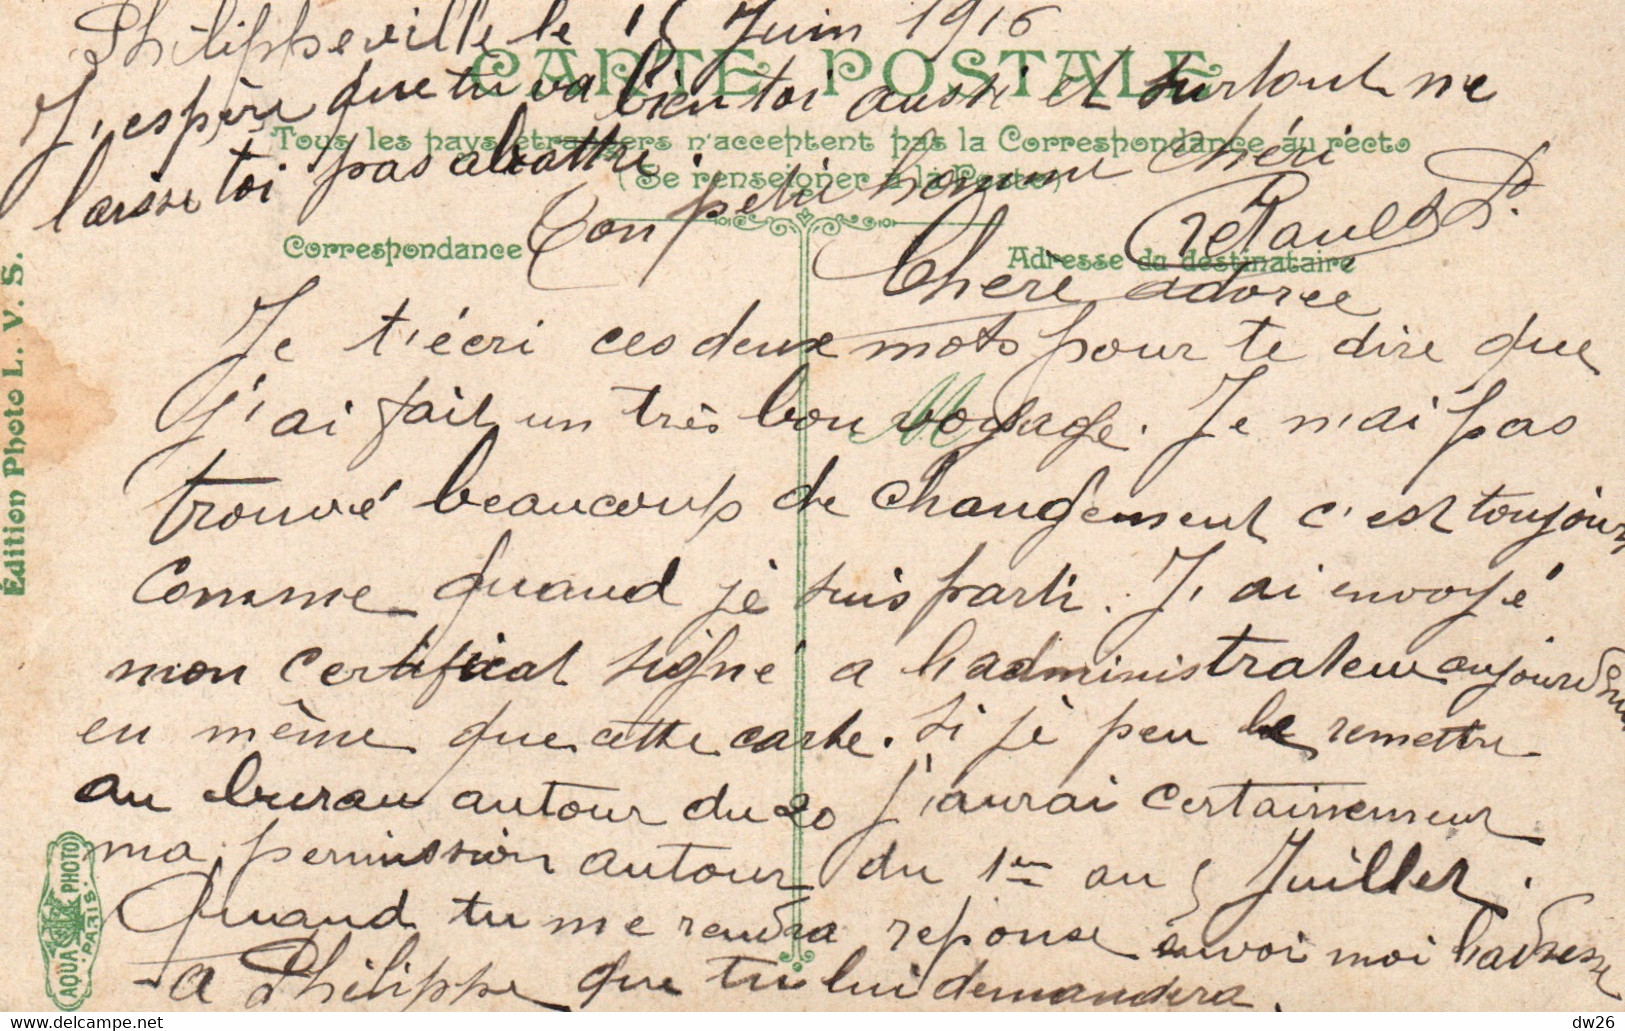 Philippeville le 15 Juin 1916
CARTE POSTALE
J'espère que tu va bien toi aussi et surtout ne
Tous les pays étrangers n'acceptent pas la Correspondance au recto
(Se renseigner à la Poste)
laisse toi pas abattre
Ton petit homme chéri
P.
Correspondance
Adresse du destinataire
Chere adoree
Je t'écri ces deux mots pour te dire que
j'ai fait un très bon voyage. Je n'ai pas
trouvé beaucoup de changement c'est toujours
comme quand je suis parti. J'ai envoyé
mon certificat signé a l'administrateur aujourd'hui
en même que cette carte. Si je peu le remettre
au bureau autour du 20 j'aurai certainement
ma permission autour du 1er au 5 Juillet.
Quand tu me rendra reponse envoi moi l'adresse
a Philippe que tu lui demandera.
Édition Photo L. V. S.
AQUA PHOTO
PARIS
dw26